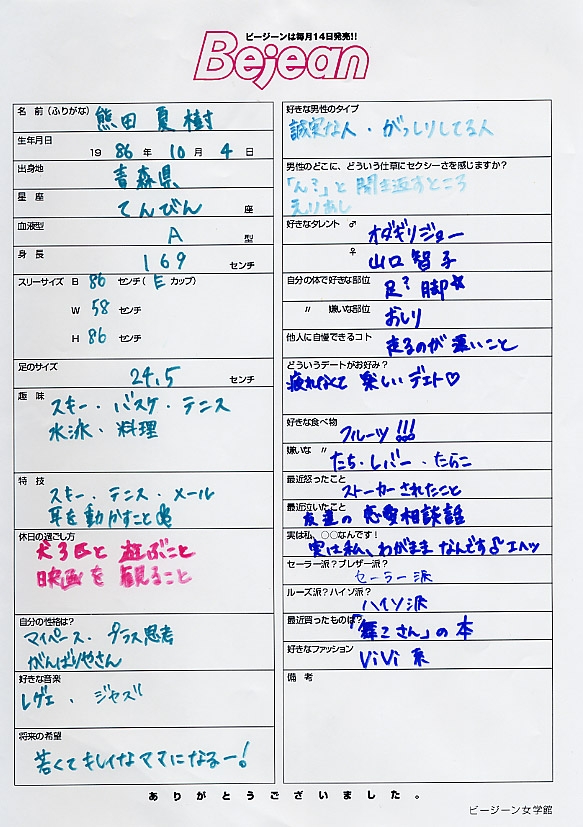 ビージーンは毎月14日発売!!
Bejean
名 前 (ふりがな) 熊田 夏樹
生年月日
19 86 年 10 月 4 日
出身地 青森県
星 座 てんびん 座
血液型 A 型
身 長 169 センチ
スリーサイズ B 86 センチ ( E カップ)
W 58 センチ
H 86 センチ
足のサイズ 24.5 センチ
趣 味 スキー・バスケ・テニス
水泳・料理
特 技 スキー・テニス・メール
耳を動かすこと
休日の過ごし方
犬3匹と遊ぶこと
映画を観ること
自分の性格は?
マイペース・プラス思考
がんばりやさん
好きな音楽
レゲエ・ジャズ
将来の希望
若くてキレイなママになるー!
好きな男性のタイプ
誠実な人・がっしりしてる人
男性のどこに、どういう仕草にセクシーさを感じますか?
「ん?」と聞き返すところ
えりあし
好きなタレント ♂ オダギリジョー
♀ 山口智子
自分の体で好きな部位 足? 脚☆
〃 嫌いな部位 おしり
他人に自慢できるコト 走るのが速いこと
どういうデートがお好み?
疲れなくて楽しいデート♡
好きな食べ物 フルーツ!!!
嫌いな 〃 たち・レバー・たらこ
最近怒ったこと ストーカーされたこと
最近泣いたこと 友達の恋愛相談話
実は私、○○なんです!
実は私、わがままなんです♪エヘッ
セーラー派?ブレザー派?
セーラー派
ルーズ派?ハイソ派?
ハイソ派
最近買ったものは? 「舞妓さん」の本
好きなファッション ViVi系
備 考
ありがとうございました。
ビージーン女学館